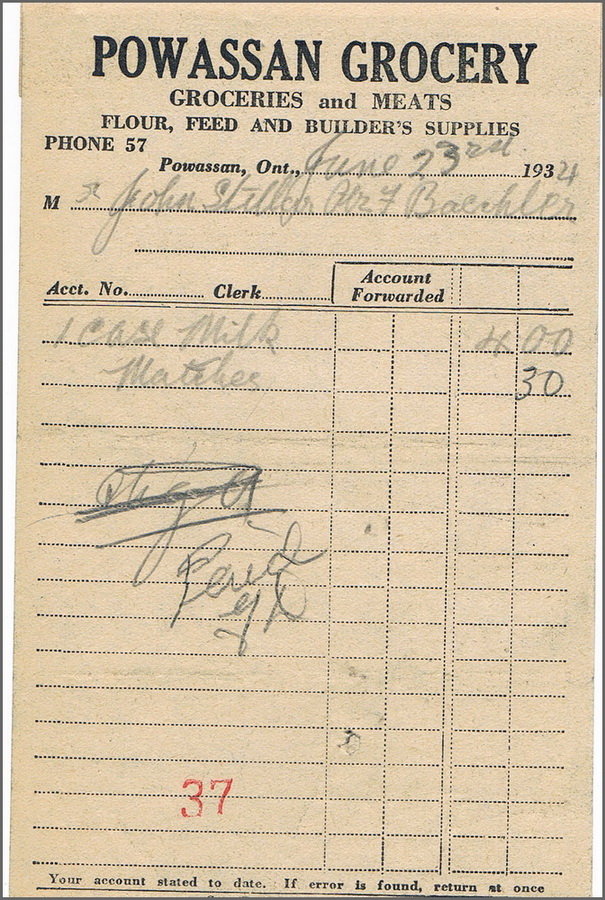 POWASSAN GROCERY
GROCERIES and MEATS
FLOUR, FEED AND BUILDER'S SUPPLIES
PHONE 57
Powassan, Ont., June 23rd 1934
M r John Baechler
Acct. No. Clerk Account Forwarded
1 case Milk 4 00
Matches 30
Paid
37
Your account stated to date. If error is found, return at once